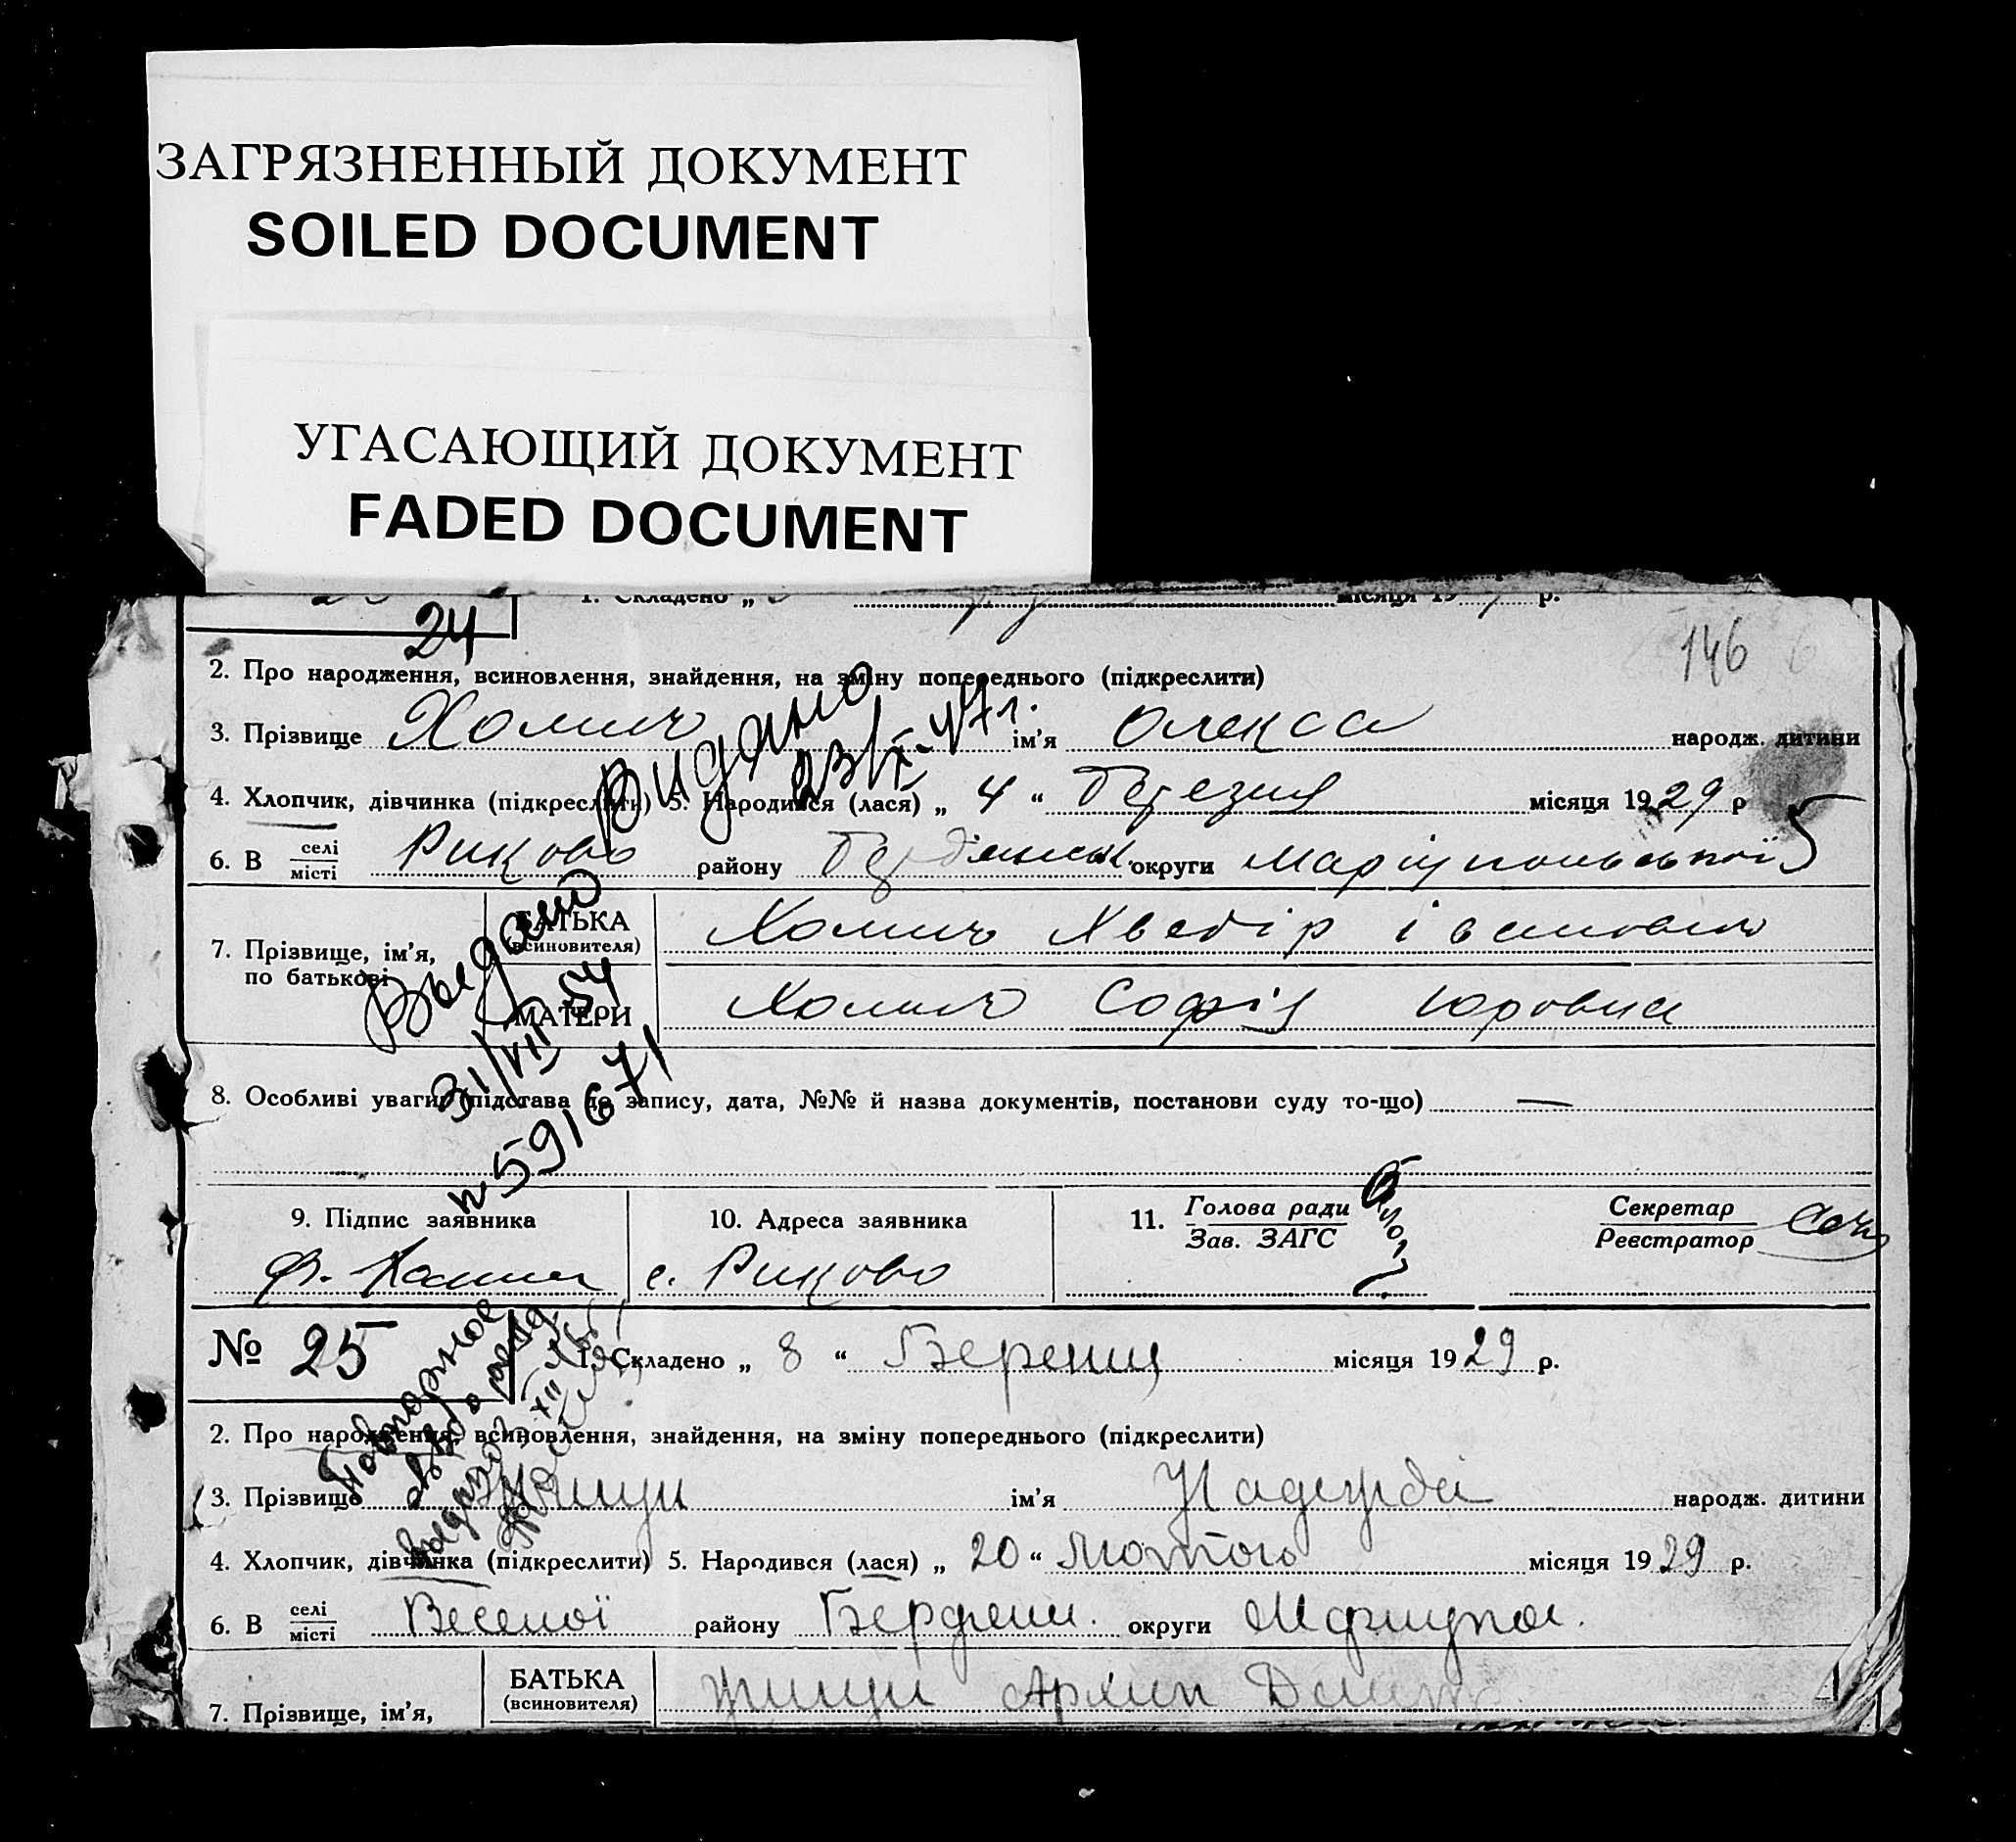 ЗАГРЯЗНЕННЫЙ ДОКУМЕНТ
SOILED DOCUMENT
УГАСАЮЩИЙ ДОКУМЕНТ
FADED DOCUMENT
1. Складено „ місяця 19 р.
24
146
2. Про народження, всиновлення, знайдення, на зміну попереднього (підкреслити)
3. Прізвище Холич ім'я Олекса народж. дитини
Видано
23/IX-47 г.
4. Хлопчик, дівчинка (підкреслити) 5. Народився (лася) „ 4 “ Березня місяця 1929 р
6. В селі/місті Риково району Бердянськ. округи Маріупольської
7. Прізвище, ім'я, по батькові
БАТЬКА (всиновителя) Холич Хведір Іванович
МАТЕРИ Холич Софія Юровна
Выдано
31/VII 54
n 591671
8. Особливі уваги (підстава до запису, дата, №№ й назва документів, постанови суду то-що) —
9. Підпис заявника
10. Адреса заявника
11. Голова ради
Зав. ЗАГС
Секретар
Реєстратор
Ф. Холич
с. Риково
№ 25 1. Складено „ 8 “ Березня місяця 1929 р.
Повторное
св-во о рожд
выдано XII
2. Про народження, всиновлення, знайдення, на зміну попереднього (підкреслити)
3. Прізвище ім'я Надежда народж. дитини
4. Хлопчик, дівчинка (підкреслити) 5. Народився (лася) „ 20 “ Лютого місяця 1929 р.
6. В селі/місті Веселої району Бердянск. округи Маріупол.
7. Прізвище, ім'я,
БАТЬКА (всиновителя) Архип